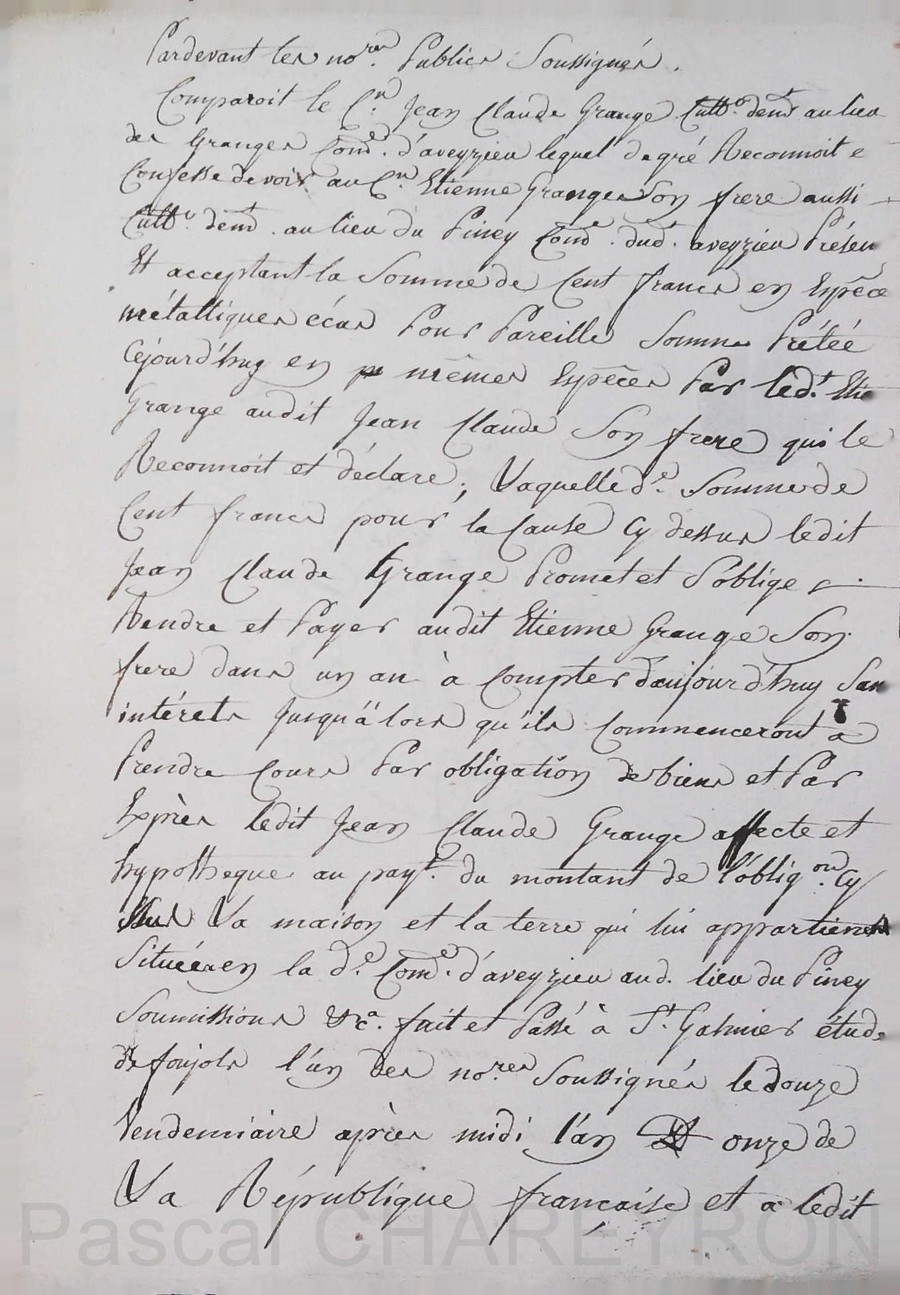 Pardevant les no.res Publics Soussignés.
Comparoit le C.n Jean Claude Grange Cult.r dem.t au lieu
des Granges Com.e d'aveyzieu lequel de gré Reconnoit e
Confesse devoir au C.n Etienne Grange Son frere aussi
Cult.r dem.t au lieu du Piney Com.e dud. aveyzieu Présen
Et acceptant la Somme de Cent francs en Espèce
métalliques écus Pour Pareille Somme Prétée
Cejourd'huy en mêmes Espèces Par led.t Etie
Grange audit Jean Claude Son frere qui le
Reconnoit et déclare; Laquelle d.e Somme de
Cent francs pour la Cause Cy dessus ledit
Jean Claude Grange Promet et S'oblige
Rendre et Payer audit Etienne Grange Son
frere dans un an à Compter d'aujourd'huy San
intérets Jusqu'alors qu'ils Commenceront à
Prendre Cours Par obligation de biens et Par
Exprès ledit Jean Claude Grange affecte et
hypotheque au pay.t du montant de l'oblig.on Cy
Sus La maison et la terre qui lui appartienent
Situées en la d.e Com.e d'aveyzieu aud. lieu du Piney
Soumissions &c.a fait et Passé à S.t Galmier étude
de foujols l'un des no.res Soussignés le douze
Vendemiaire après midi l'an onze de
La République francaise et a ledit
Pascal CHAREYRON